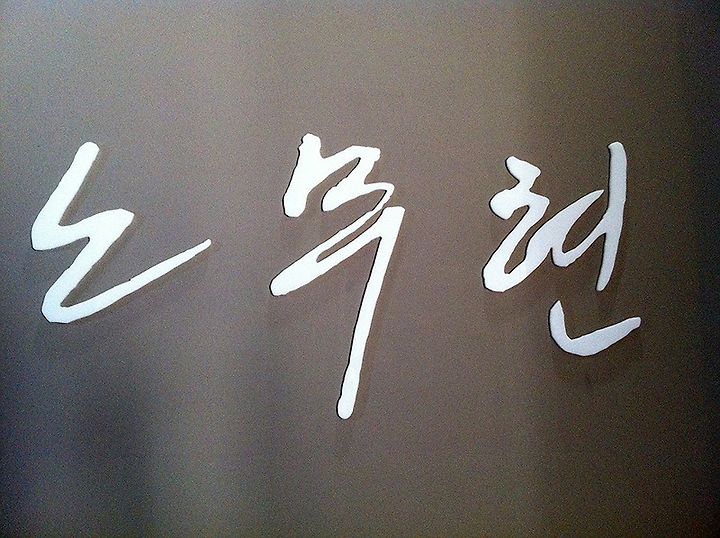 노무현